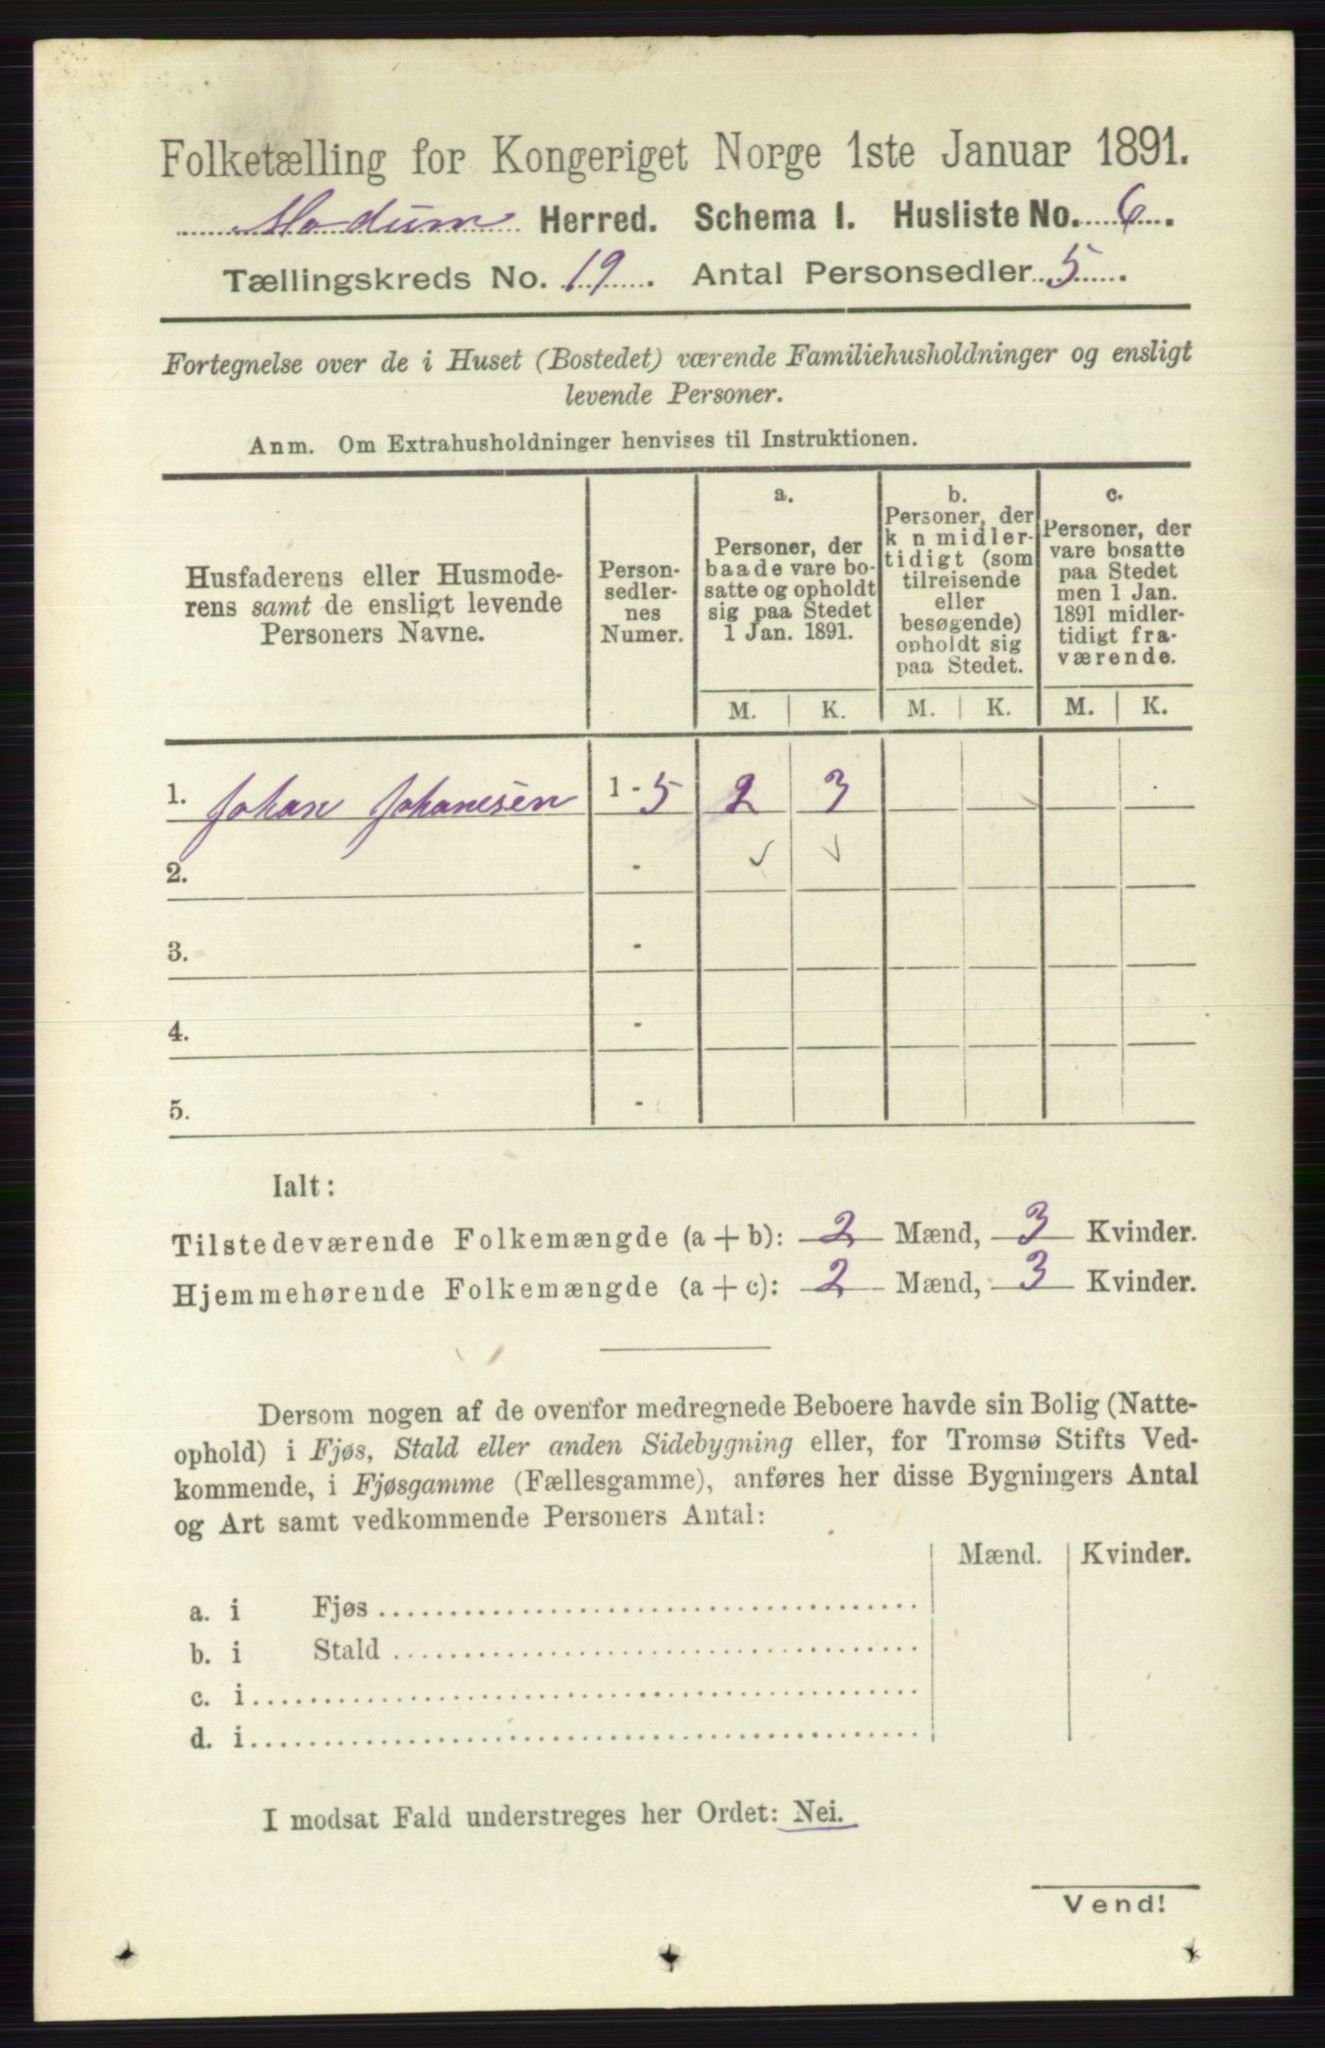 Folketælling for Kongeriget Norge 1ste Januar 1891.
Modum Herred. Schema I. Husliste No. 6.
Tællingskreds No. 19. Antal Personsedler 5.
Fortegnelse over de i Huset (Bostedet) værende Familiehusholdninger og ensligt
levende Personer.
Anm. Om Extrahusholdninger henvises til Instruktionen.
Husfaderens eller Husmode-
rens samt de ensligt levende
Personers Navne.
Person-
sedler-
nes
Numer.
a.
Personer, der
baade vare bo-
satte og opholdt
sig paa Stedet
1 Jan. 1891.
b.
Personer, der
k n midler-
tidigt (som
tilreisende
eller
besøgende)
opholdt sig
paa Stedet.
c.
Personer, der
vare bosatte
paa Stedet
men 1 Jan.
1891 midler-
tidigt fra-
værende.
M. K. M. K. M. K.
1. Johan Johanesen 1 - 5 2 3
2. -
3. -
4. -
5. -
Ialt:
Tilstedeværende Folkemængde (a + b): 2 Mænd, 3 Kvinder.
Hjemmehørende Folkemængde (a + c): 2 Mænd, 3 Kvinder.
Dersom nogen af de ovenfor medregnede Beboere havde sin Bolig (Natte-
ophold) i Fjøs, Stald eller anden Sidebygning eller, for Tromsø Stifts Ved-
kommende, i Fjøsgamme (Fællesgamme), anføres her disse Bygningers Antal
og Art samt vedkommende Personers Antal:
Mænd. Kvinder.
a. i Fjøs
b. i Stald
c. i
d. i
I modsat Fald understreges her Ordet: Nei.
Vend!